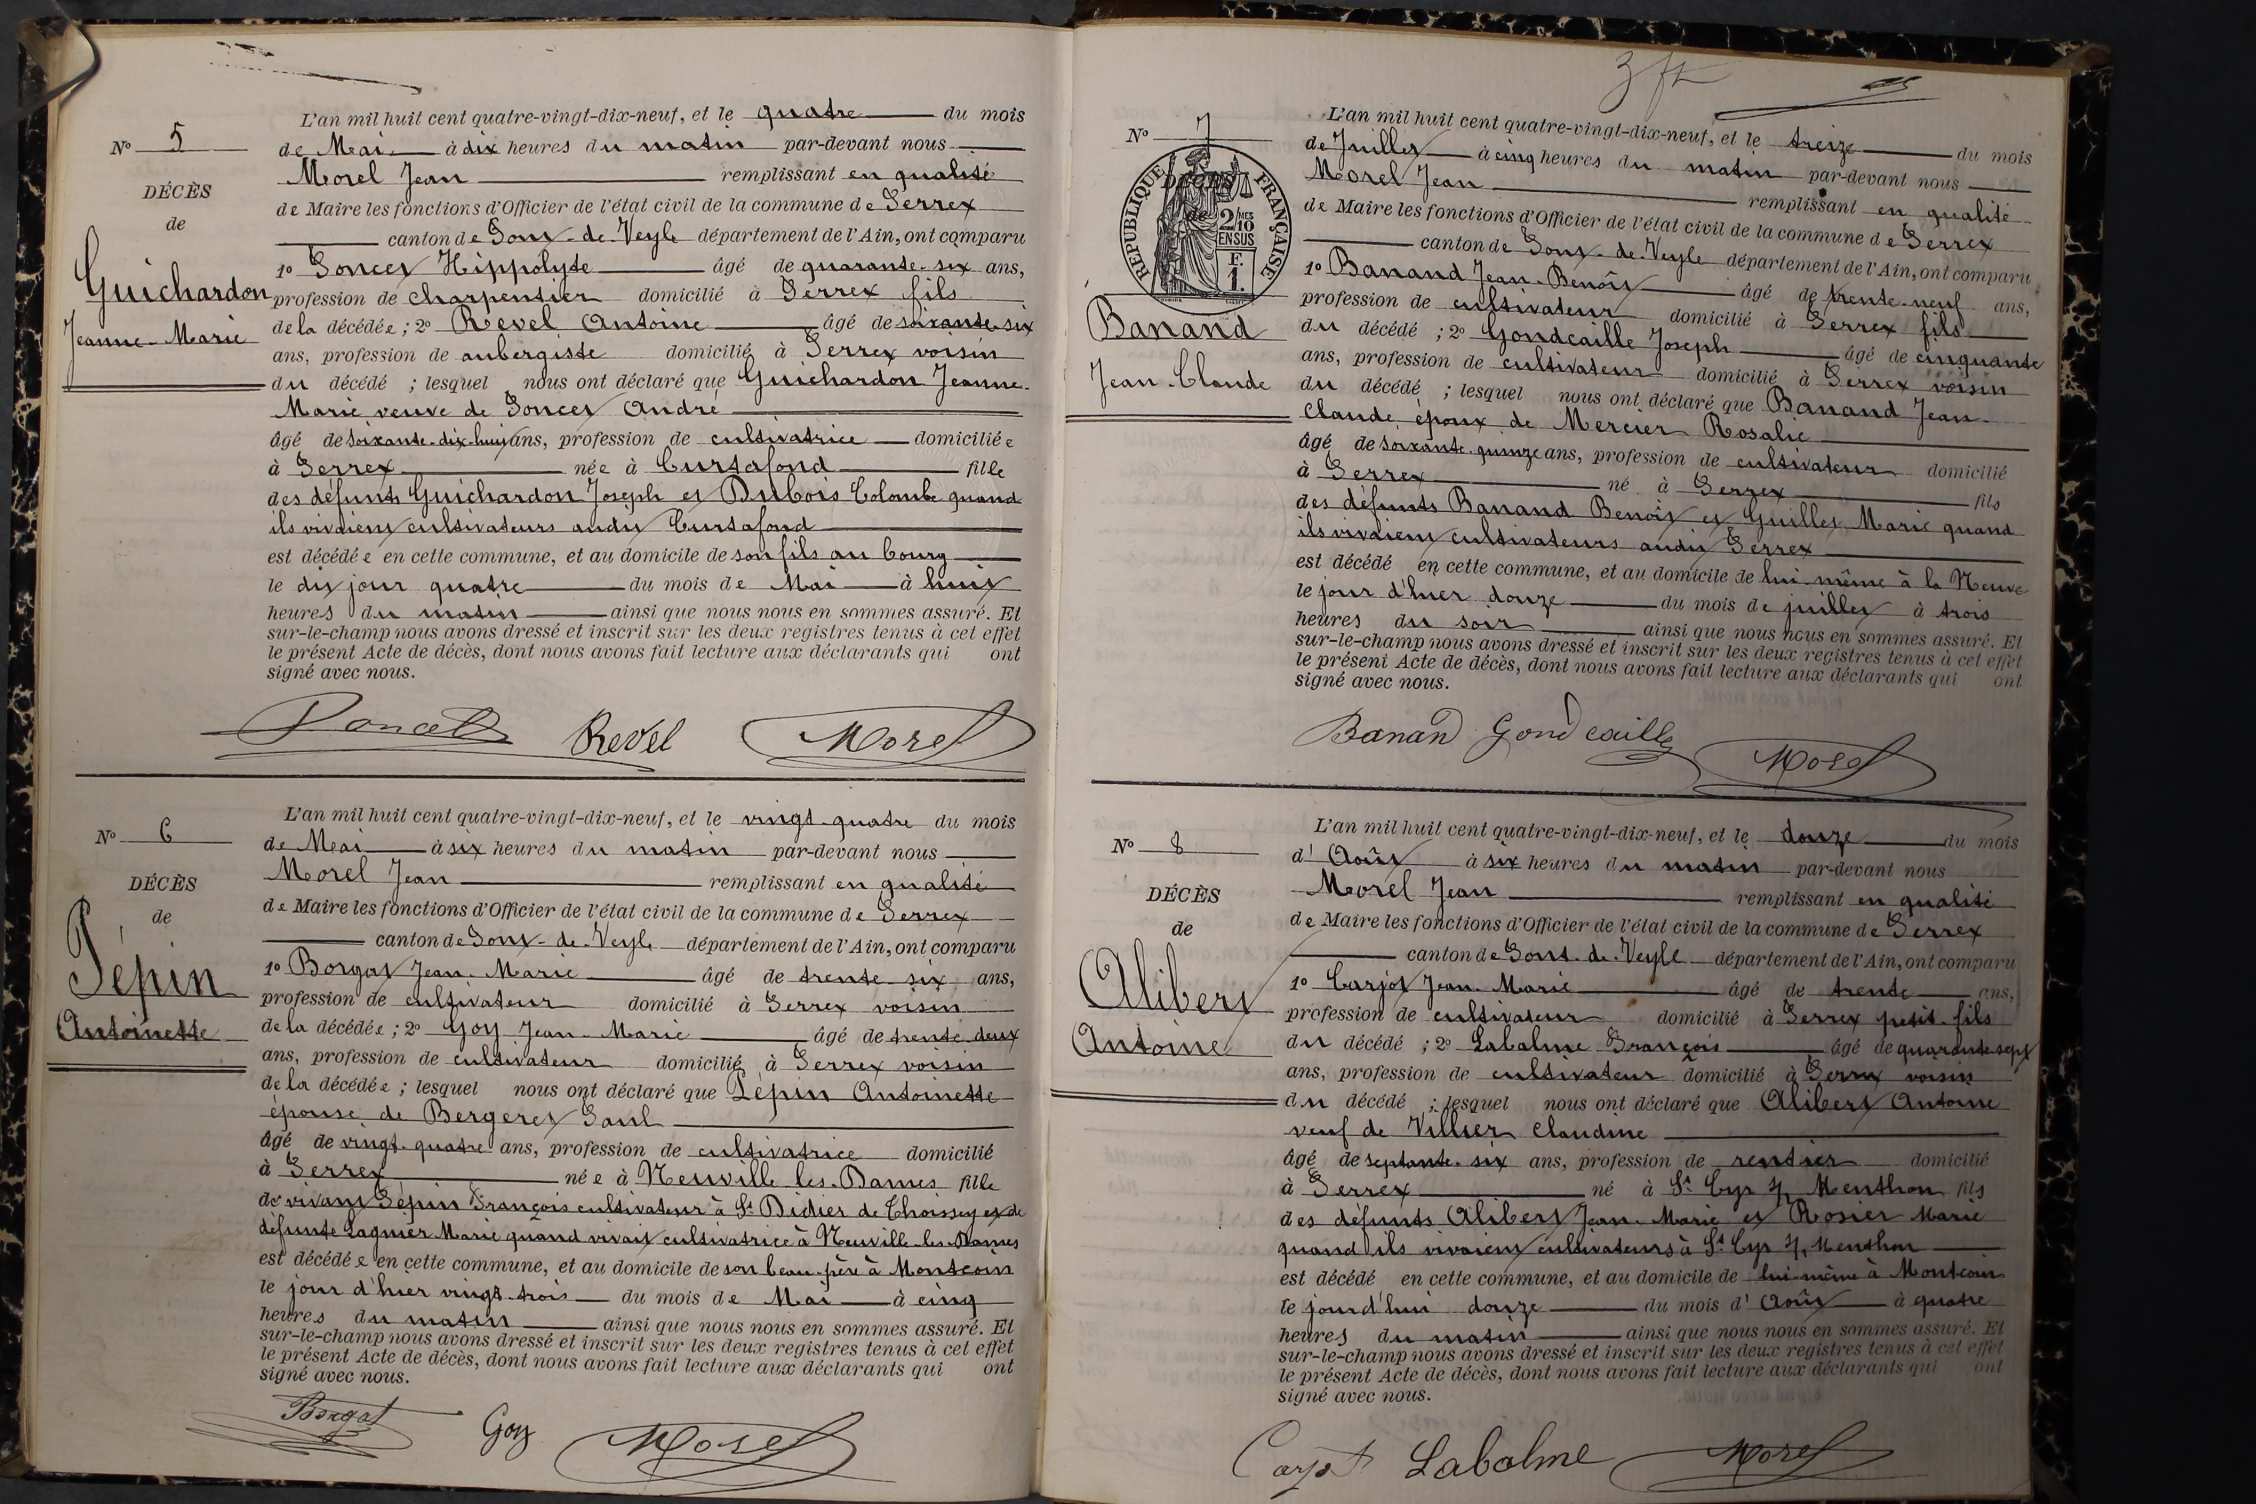 N° 5
DÉCÈS
de
Guichardon
Jeanne-Marie
L'an mil huit cent quatre-vingt-dix-neuf, et le quatre du mois
de Mai à dix heures du matin par-devant nous
Morel Jean remplissant en qualité
de Maire les fonctions d'Officier de l'état civil de la commune de Perrex
canton de Pont-de-Veyle département de l'Ain, ont comparu
1° Poncet Hippolyte âgé de quarante-six ans,
profession de charpentier domicilié à Perrex fils
de la décédée ; 2° Revel Antoine âgé de soixante-six
ans, profession de aubergiste domicilié à Perrex voisin
du décédé ; lesquel nous ont déclaré que Guichardon Jeanne-
Marie veuve de Poncet André
âgé de soixante-dix-huit ans, profession de cultivatrice domiciliée
à Perrex née à Curtafond fille
des défunts Guichardon Joseph et Dubois Colombe quand
ils vivaient cultivateurs audit Curtafond
est décédée en cette commune, et au domicile de son fils au bourg
le dit jour quatre du mois de Mai à huit
heures du matin ainsi que nous nous en sommes assuré. Et
sur-le-champ nous avons dressé et inscrit sur les deux registres tenus à cet effet
le présent Acte de décès, dont nous avons fait lecture aux déclarants qui ont
signé avec nous.
Poncet Revel Morel
N° 6
DÉCÈS
de
Pépin
Antoinette
L'an mil huit cent quatre-vingt-dix-neuf, et le vingt-quatre du mois
de Mai à six heures du matin par-devant nous
Morel Jean remplissant en qualité
de Maire les fonctions d'Officier de l'état civil de la commune de Perrex
canton de Pont-de-Veyle département de l'Ain, ont comparu
1° Borgat Jean-Marie âgé de trente-six ans,
profession de cultivateur domicilié à Perrex voisin
de la décédée ; 2° Goy Jean-Marie âgé de trente-deux
ans, profession de cultivateur domicilié à Perrex voisin
de la décédée ; lesquel nous ont déclaré que Pépin Antoinette
épouse de Bergeret Paul
âgé de vingt-quatre ans, profession de cultivatrice domicilié
à Perrex née à Neuville-les-Dames fille
de vivant Pépin François cultivateur à St Didier de Thoissey et de
défunte Lagnier Marie quand vivait cultivatrice à Neuville-les-Dames
est décédée en cette commune, et au domicile de son beau-père à Montcoin
le jour d'hier vingt-trois du mois de Mai à cinq
heures du matin ainsi que nous nous en sommes assuré. Et
sur-le-champ nous avons dressé et inscrit sur les deux registres tenus à cet effet
le présent Acte de décès, dont nous avons fait lecture aux déclarants qui ont
signé avec nous.
Borgat Goy Morel
N° 7
DÉCÈS
de
RÉPUBLIQUE FRANÇAISE
2/10 MES
EN SUS
F.
1.
Banand
Jean-Claude
L'an mil huit cent quatre-vingt-dix-neuf, et le treize du mois
de Juillet à cinq heures du matin par-devant nous
Morel Jean remplissant en qualité
de Maire les fonctions d'Officier de l'état civil de la commune de Perrex
canton de Pont-de-Veyle département de l'Ain, ont comparu
1° Banand Jean-Benoît âgé de trente-neuf ans,
profession de cultivateur domicilié à Perrex fils
du décédé ; 2° Gondcaille Joseph âgé de cinquante
ans, profession de cultivateur domicilié à Perrex voisin
du décédé ; lesquel nous ont déclaré que Banand Jean-
Claude époux de Mercier Rosalie
âgé de soixante-quinze ans, profession de cultivateur domicilié
à Perrex né à Perrex fils
des défunts Banand Benoît et Guillet Marie quand
ils vivaient cultivateurs audit Perrex
est décédé en cette commune, et au domicile de lui-même à la Neuve
le jour d'hier douze du mois de juillet à trois
heures du soir ainsi que nous nous en sommes assuré. Et
sur-le-champ nous avons dressé et inscrit sur les deux registres tenus à cet effet
le présent Acte de décès, dont nous avons fait lecture aux déclarants qui ont
signé avec nous.
Banand Gondcaille Morel
N° 8
DÉCÈS
de
Alibert
Antoine
L'an mil huit cent quatre-vingt-dix-neuf, et le douze du mois
d'Août à six heures du matin par-devant nous
Morel Jean remplissant en qualité
de Maire les fonctions d'Officier de l'état civil de la commune de Perrex
canton de Pont-de-Veyle département de l'Ain, ont comparu
1° Carjot Jean-Marie âgé de trente ans,
profession de cultivateur domicilié à Perrex petit-fils
du décédé ; 2° Labalme François âgé de quarante-sept
ans, profession de cultivateur domicilié à Perrex voisin
du décédé ; lesquel nous ont déclaré que Alibert Antoine
veuf de Villier Claudine
âgé de septante-six ans, profession de rentier domicilié
à Perrex né à St Cyr s/ Menthon fils
des défunts Alibert Jean-Marie et Rosier Marie
quand ils vivaient cultivateurs à St Cyr s/ Menthon
est décédé en cette commune, et au domicile de lui-même à Montcoin
le jour d'hui douze du mois d'Août à quatre
heures du matin ainsi que nous nous en sommes assuré. Et
sur-le-champ nous avons dressé et inscrit sur les deux registres tenus à cet effet
le présent Acte de décès, dont nous avons fait lecture aux déclarants qui ont
signé avec nous.
Carjot Labalme Morel